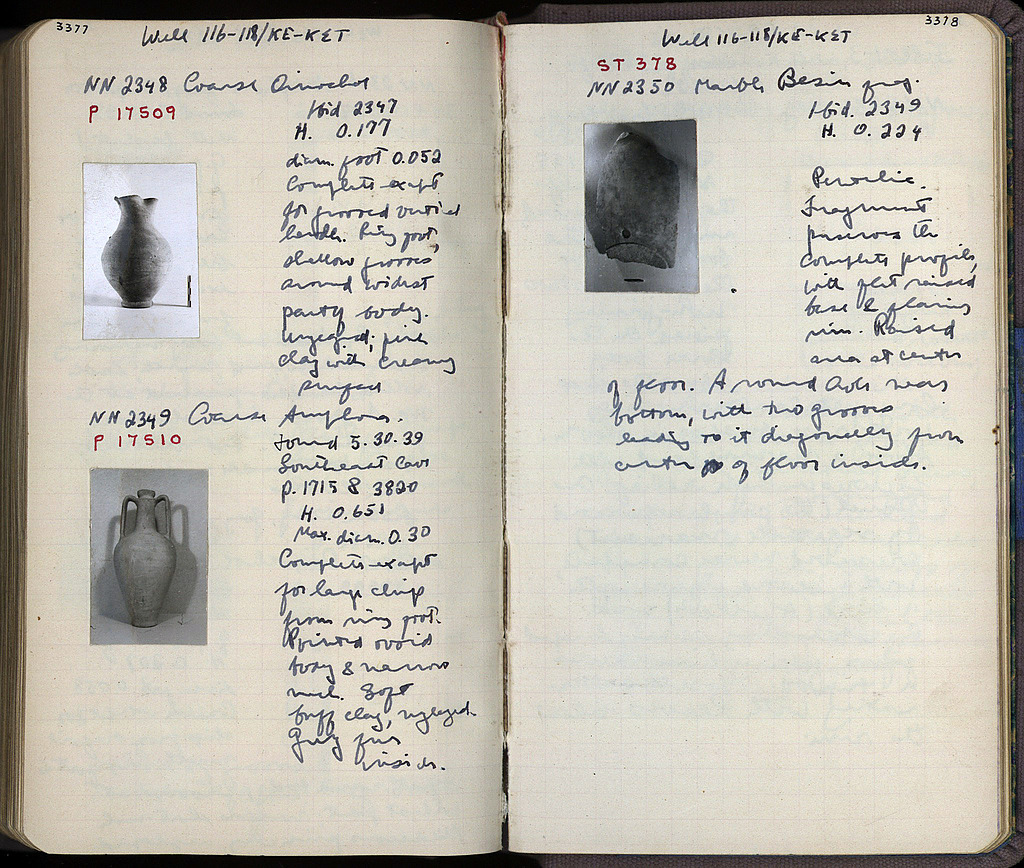 3377
Well 116-118/KE-KET
NN 2348 Coarse Oinochoe
P 17509
Ibid 2347
H. 0.177
diam. foot 0.052
Complete except
for grooved vertical
handle. Ring foot,
shallow grooves
around widest
part of body.
Unglazed; pink
clay with creamy
surface
NN 2349 Coarse Amphora.
P 17510
Found 5.30.39
Southeast Cave
p. 1715 & 3820
H. 0.651
Max. diam. 0.30
Complete except
for large chip
from ring foot.
Pointed ovoid
body & narrow
neck. Soft
buff clay, unglazed.
Grey
inside.
3378
Well 116-118/KE-KET
ST 378
NN 2350 Marble Basin frag.
Ibid. 2349
H. 0.224
Pentelic.
Fragment
preserves the
complete profile,
with flat raised
base & flaring
rim. Raised
area at center
of floor. A round hole near
bottom, with two grooves
leading to it diagonally from
center of floor inside.